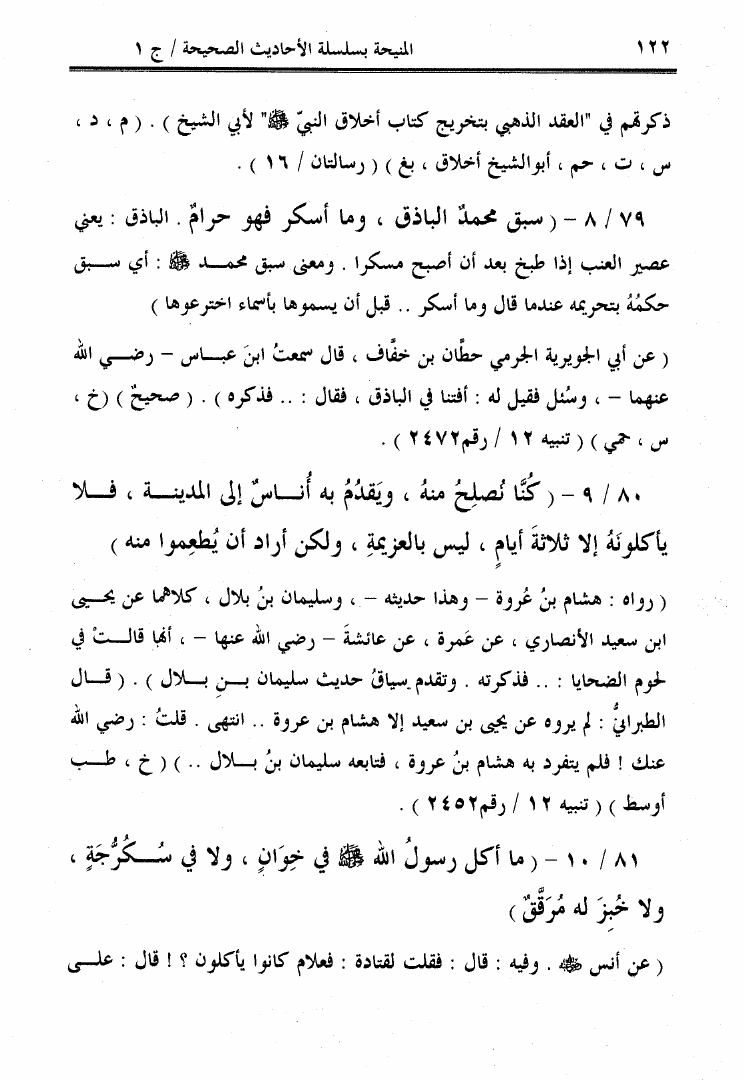 ١٢٢ المنيحة بسلسلة الأحاديث الصحيحة / ج ١
ذكرتهم في "العقد الذهبي بتخريج كتاب أخلاق النبيّ ﷺ" لأبي الشيخ ) . ( م ، د ،
س ، ت ، حم ، أبوالشيخ أخلاق ، بغ ) ( رسالتان / ١٦ ) .
٧٩/ ٨ – ( سبق محمدٌ الباذق ، وما أسكر فهو حرامٌ . الباذق : يعني
عصير العنب إذا طبخ بعد أن أصبح مسكرا . ومعنى سبق محمـد ﷺ : أي سـبق
حكمُهُ بتحريمه عندما قال وما أسكر .. قبل أن يسموها بأسماء اخترعوها )
( عن أبي الجويرية الجرمي حطَّان بن خفَّاف ، قال سمعتُ ابنَ عبـاس – رضـي الله
عنهما – ، وسُئل فقيل له : أفتنا في الباذق ، فقال : .. فذكره ) . ( صحيحٌ ) (خ ،
س ، حمي ) ( تنبيه ١٢ / رقم٢٤٧٢ ) .
٨٠/ ٩ – ( كُنَّا نُصلِحُ منهُ ، ويَقدُمُ به أُنـاسٌ إلى المدينـة ، فـلا
يأكلونَهُ إلا ثلاثةَ أيامٍ ، ليس بالعزيمةِ ، ولكن أراد أن يُطعِموا منه )
( رواه : هشام بنُ عُروة – وهذا حديثه – ، وسليمان بنُ بلال ، كلاهما عن يحيـى
ابن سعيد الأنصاري ، عن عَمرة ، عن عائشةَ – رضي الله عنها – ، أنها قالـتْ في
لحوم الضحايا : .. فذكرته . وتقدم سياقُ حديث سليمان بـنِ بـلال ) . ( قـال
الطبرانيُّ : لم يروه عن يحيى بن سعيد إلا هشام بن عروة .. انتهى . قلتُ : رضي الله
عنك ! فلم يتفرد به هشام بنُ عروة ، فتابعه سليمان بنُ بـلال .. ) ( خ ، طـب
أوسط ) ( تنبيه ١٢ / رقم٢٤٥٢ ) .
٨١/ ١٠ – ( ما أكل رسولُ الله ﷺ في خِوَانٍ ، ولا في سُـكُرُّجَةٍ ،
ولا خُبِزَ له مُرَقَّقٌ )
( عن أنس ﷺ . وفيه : قال : فقلت لقتادة : فعلام كانوا يأكلون ؟ ! قال : علـى